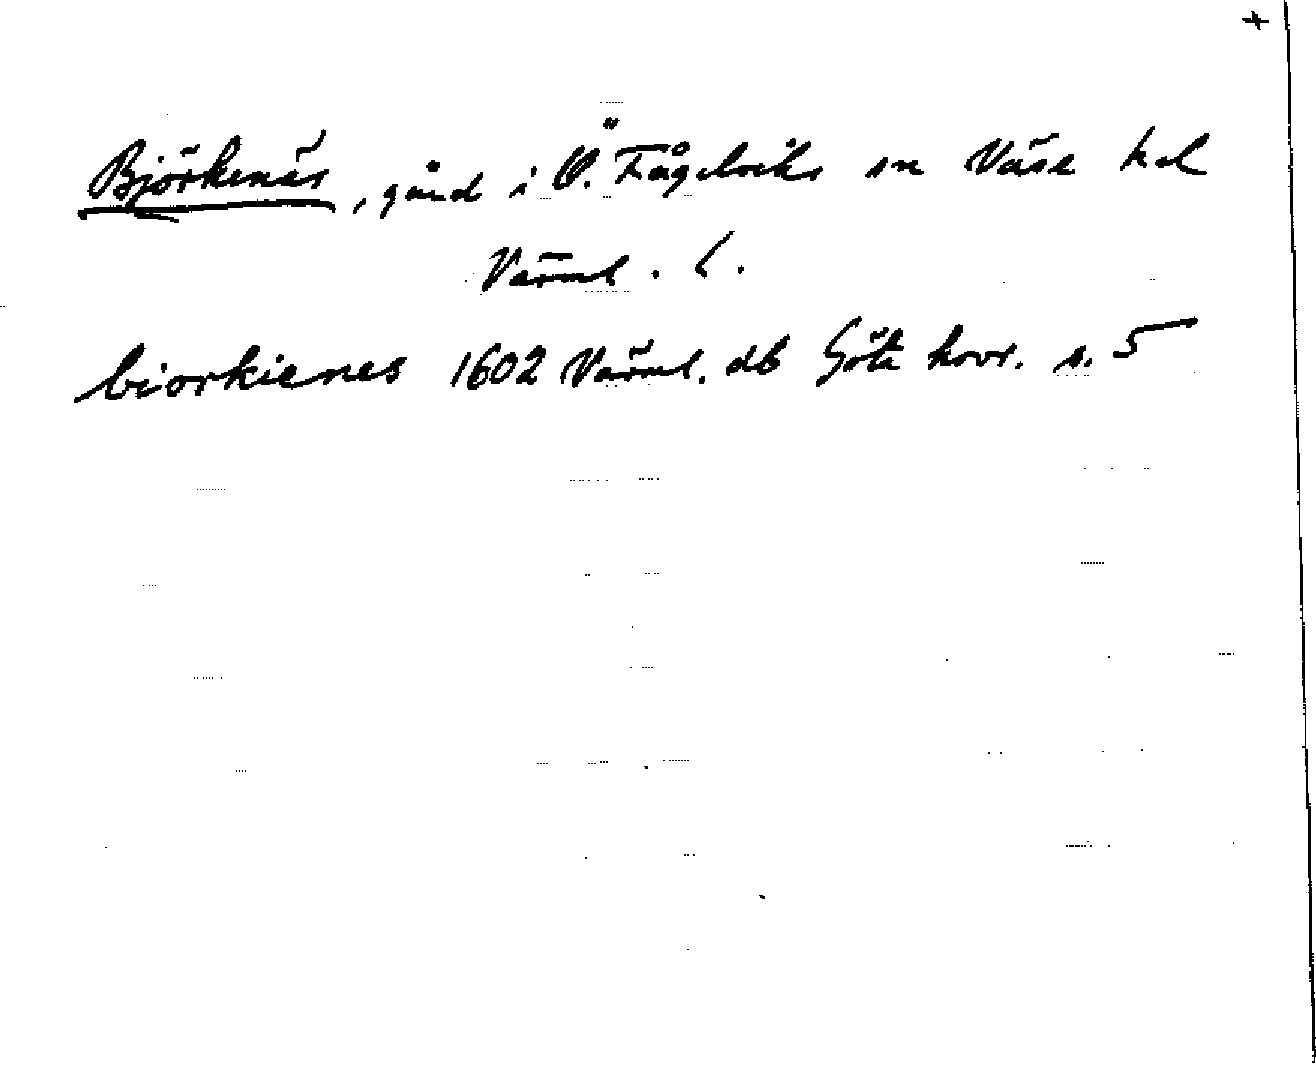 +
Björkenäs, gård i Ö. Fågelviks sn Väse hd
Värml. l.
biorkienes 1602 Värml. db Göta hovr. s. 5